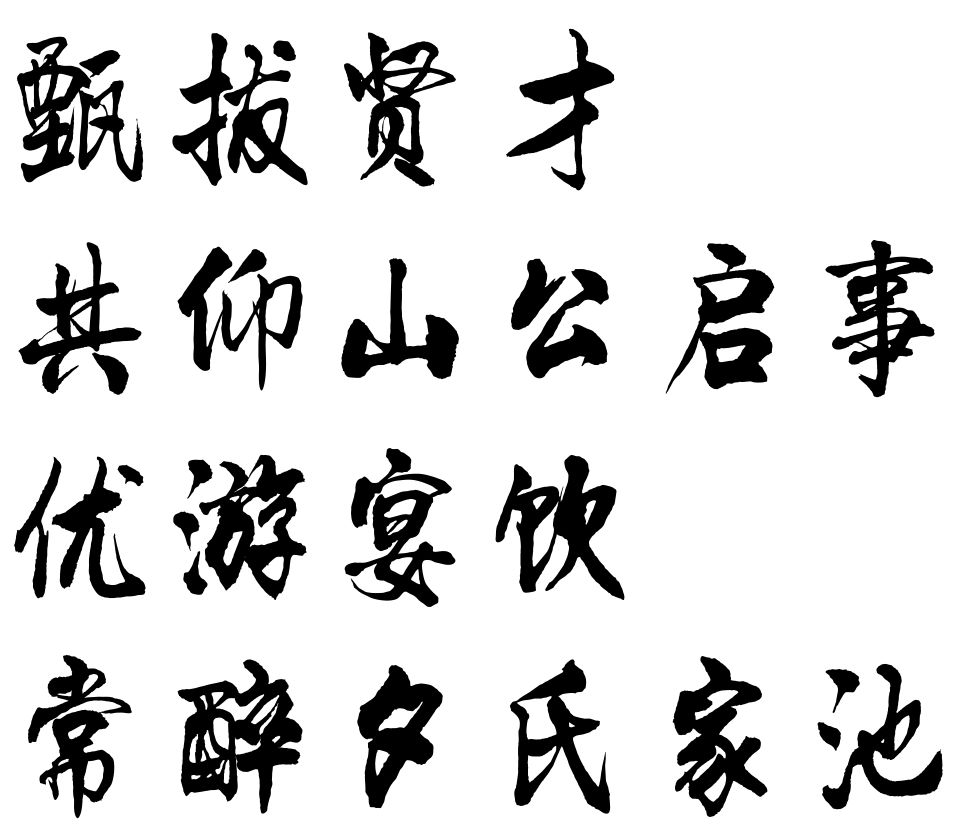 甄拔贤才
共仰山公启事
优游宴饮
常醉夕氏家池